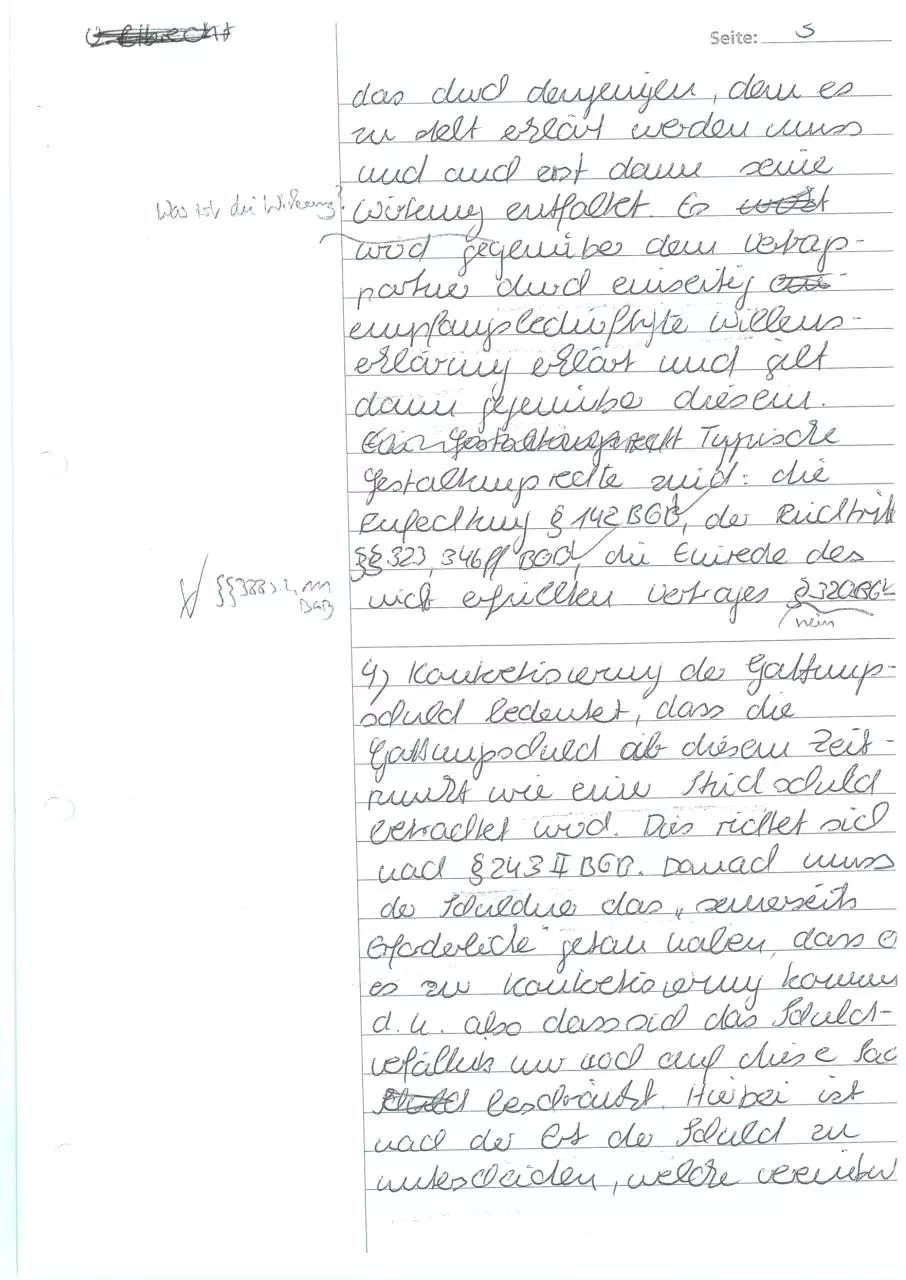 Seite: 5
das durch denjenigen, dem es
zu steht erklärt werden muss
und auch erst dann seine
Was ist die Wirkung?
Wirkung entfaltet. Es
wird gegenüber dem Vertrags-
partner durch einseitig
empfangsbedürftigte Willens-
erklärung erklärt und gilt
dann gegenüber diesem.
Typische
Gestaltungsrechte sind: die
Anfechtung § 142 BGB, der Rücktritt
§§ 323, 346 ff BGB, die Einrede des
§§ 388
BGB
nicht erfüllten Vertrages § 320 BGB
nein
4) Konkretisierung der Gattungs-
schuld bedeutet, dass die
Gattungsschuld ab diesem Zeit-
punkt wie eine Stückschuld
betrachtet wird. Dies richtet sich
nach § 243 II BGB. Danach muss
der Schuldner das „seinerseits
Erforderliche" getan haben, dass
es zur Konkretisierung kommt
d.h. also dass sich das Schuld-
verhältnis nur noch auf diese Sac
beschränkt. Hierbei ist
nach der Art der Schuld zu
unterscheiden, welche